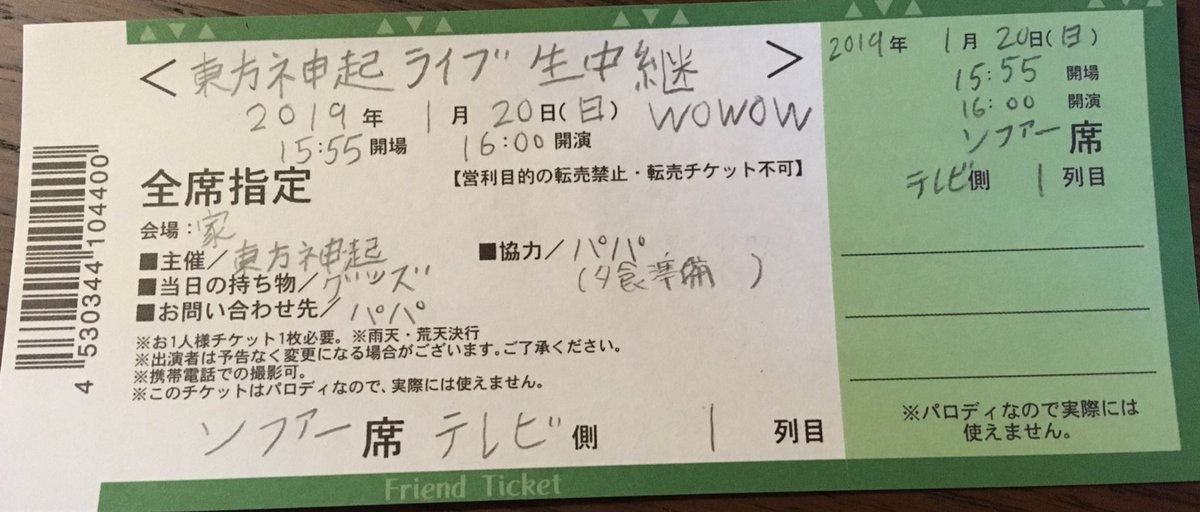 ＜東方神起 ライブ 生中継＞
2019年 1月 20日(日) WOWOW
15:55開場 16:00開演
全席指定 【営利目的の転売禁止・転売チケット不可】
会場：家
■主催/東方神起 ■協力/パパ
■当日の持ち物/グッズ (夕食準備)
■お問い合わせ先/パパ
※お1人様チケット1枚必要。※雨天・荒天決行
※出演者は予告なく変更になる場合がございます。ご了承ください。
※携帯電話での撮影可。
※このチケットはパロディなので、実際には使えません。
ソファー席 テレビ側 1列目
Friend Ticket
4 530344 104400
2019年 1月 20日(日)
15:55 開場
16:00 開演
ソファー席
テレビ側 1列目
※パロディなので実際には
使えません。